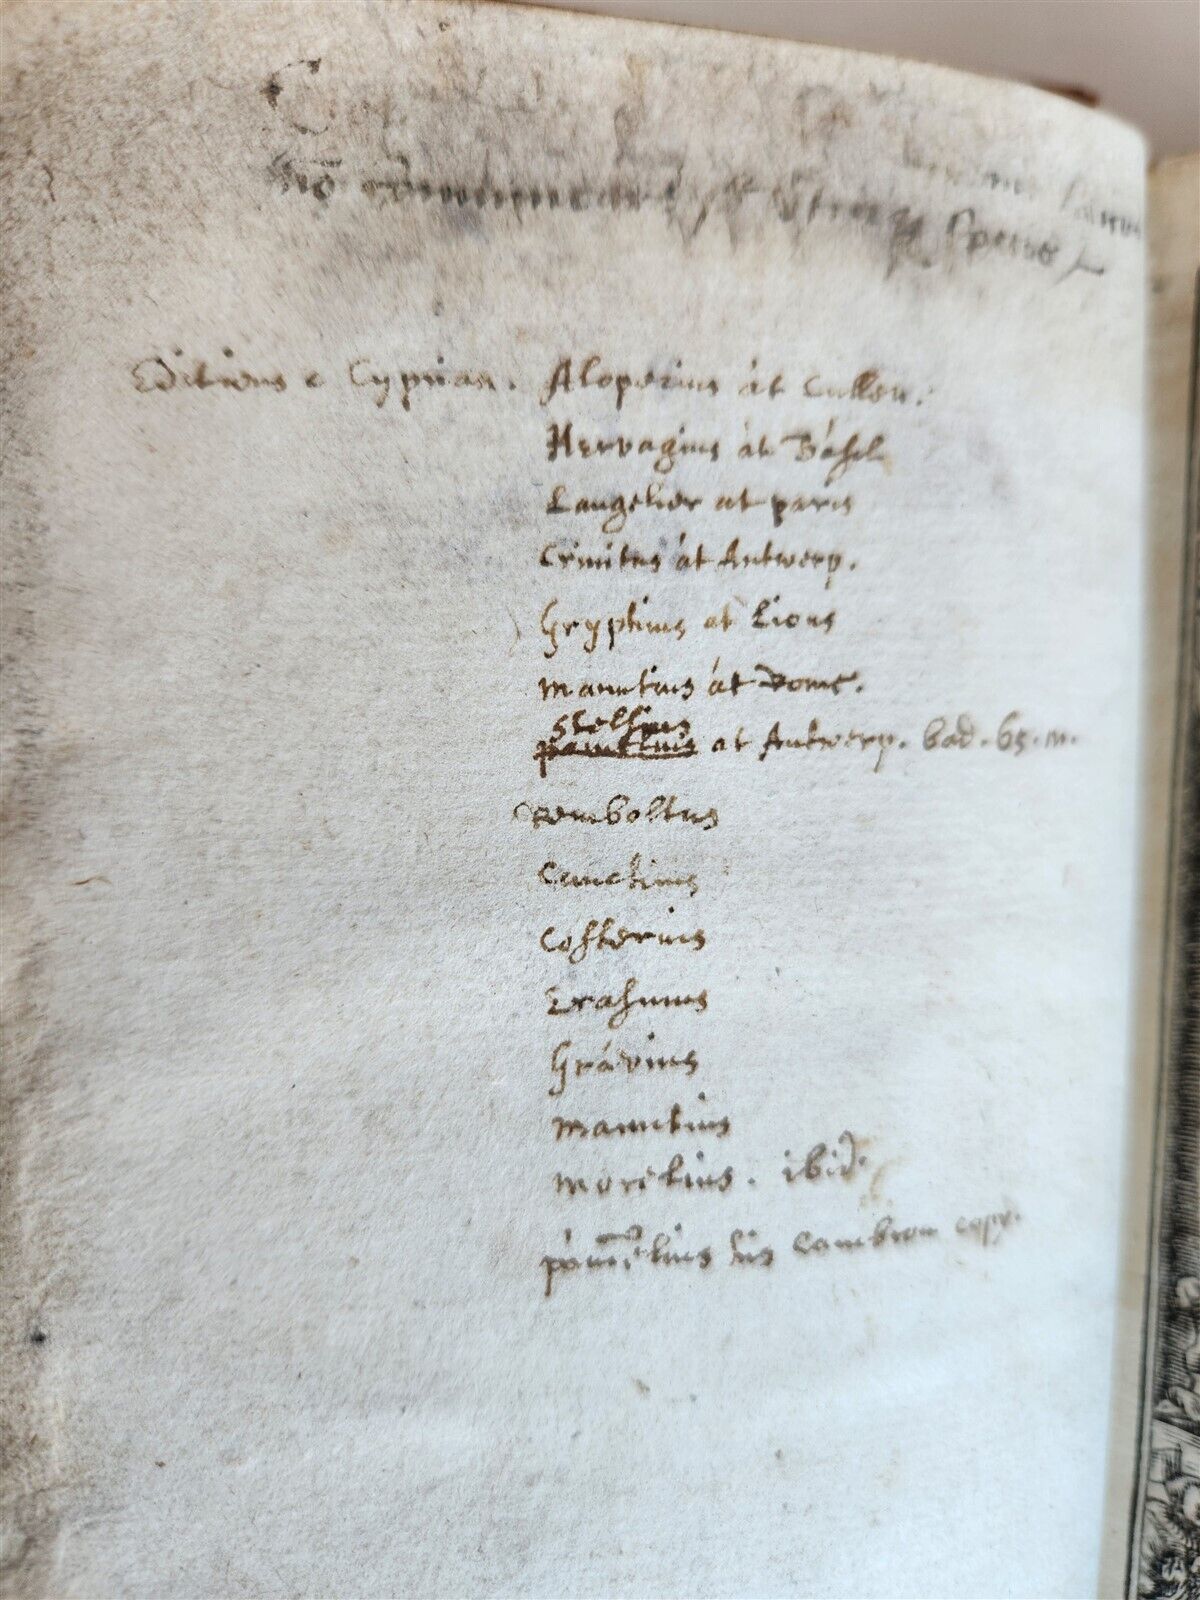 nō cōmunicari sub Specie
Editions e Cyprian. Alopecius at Cullen.
Hervagius at Basil
Langelier at paris
Crinitus at Antwerp.
Gryphius at Lions
manutius at Rome.
Stelsius
at Antwerp. bad. 65. m.
Remboltus
Cauchius
Costerius
Erasmus
Gravius
Manutius
morelius. ibid.
pamelius his Cambron copy.